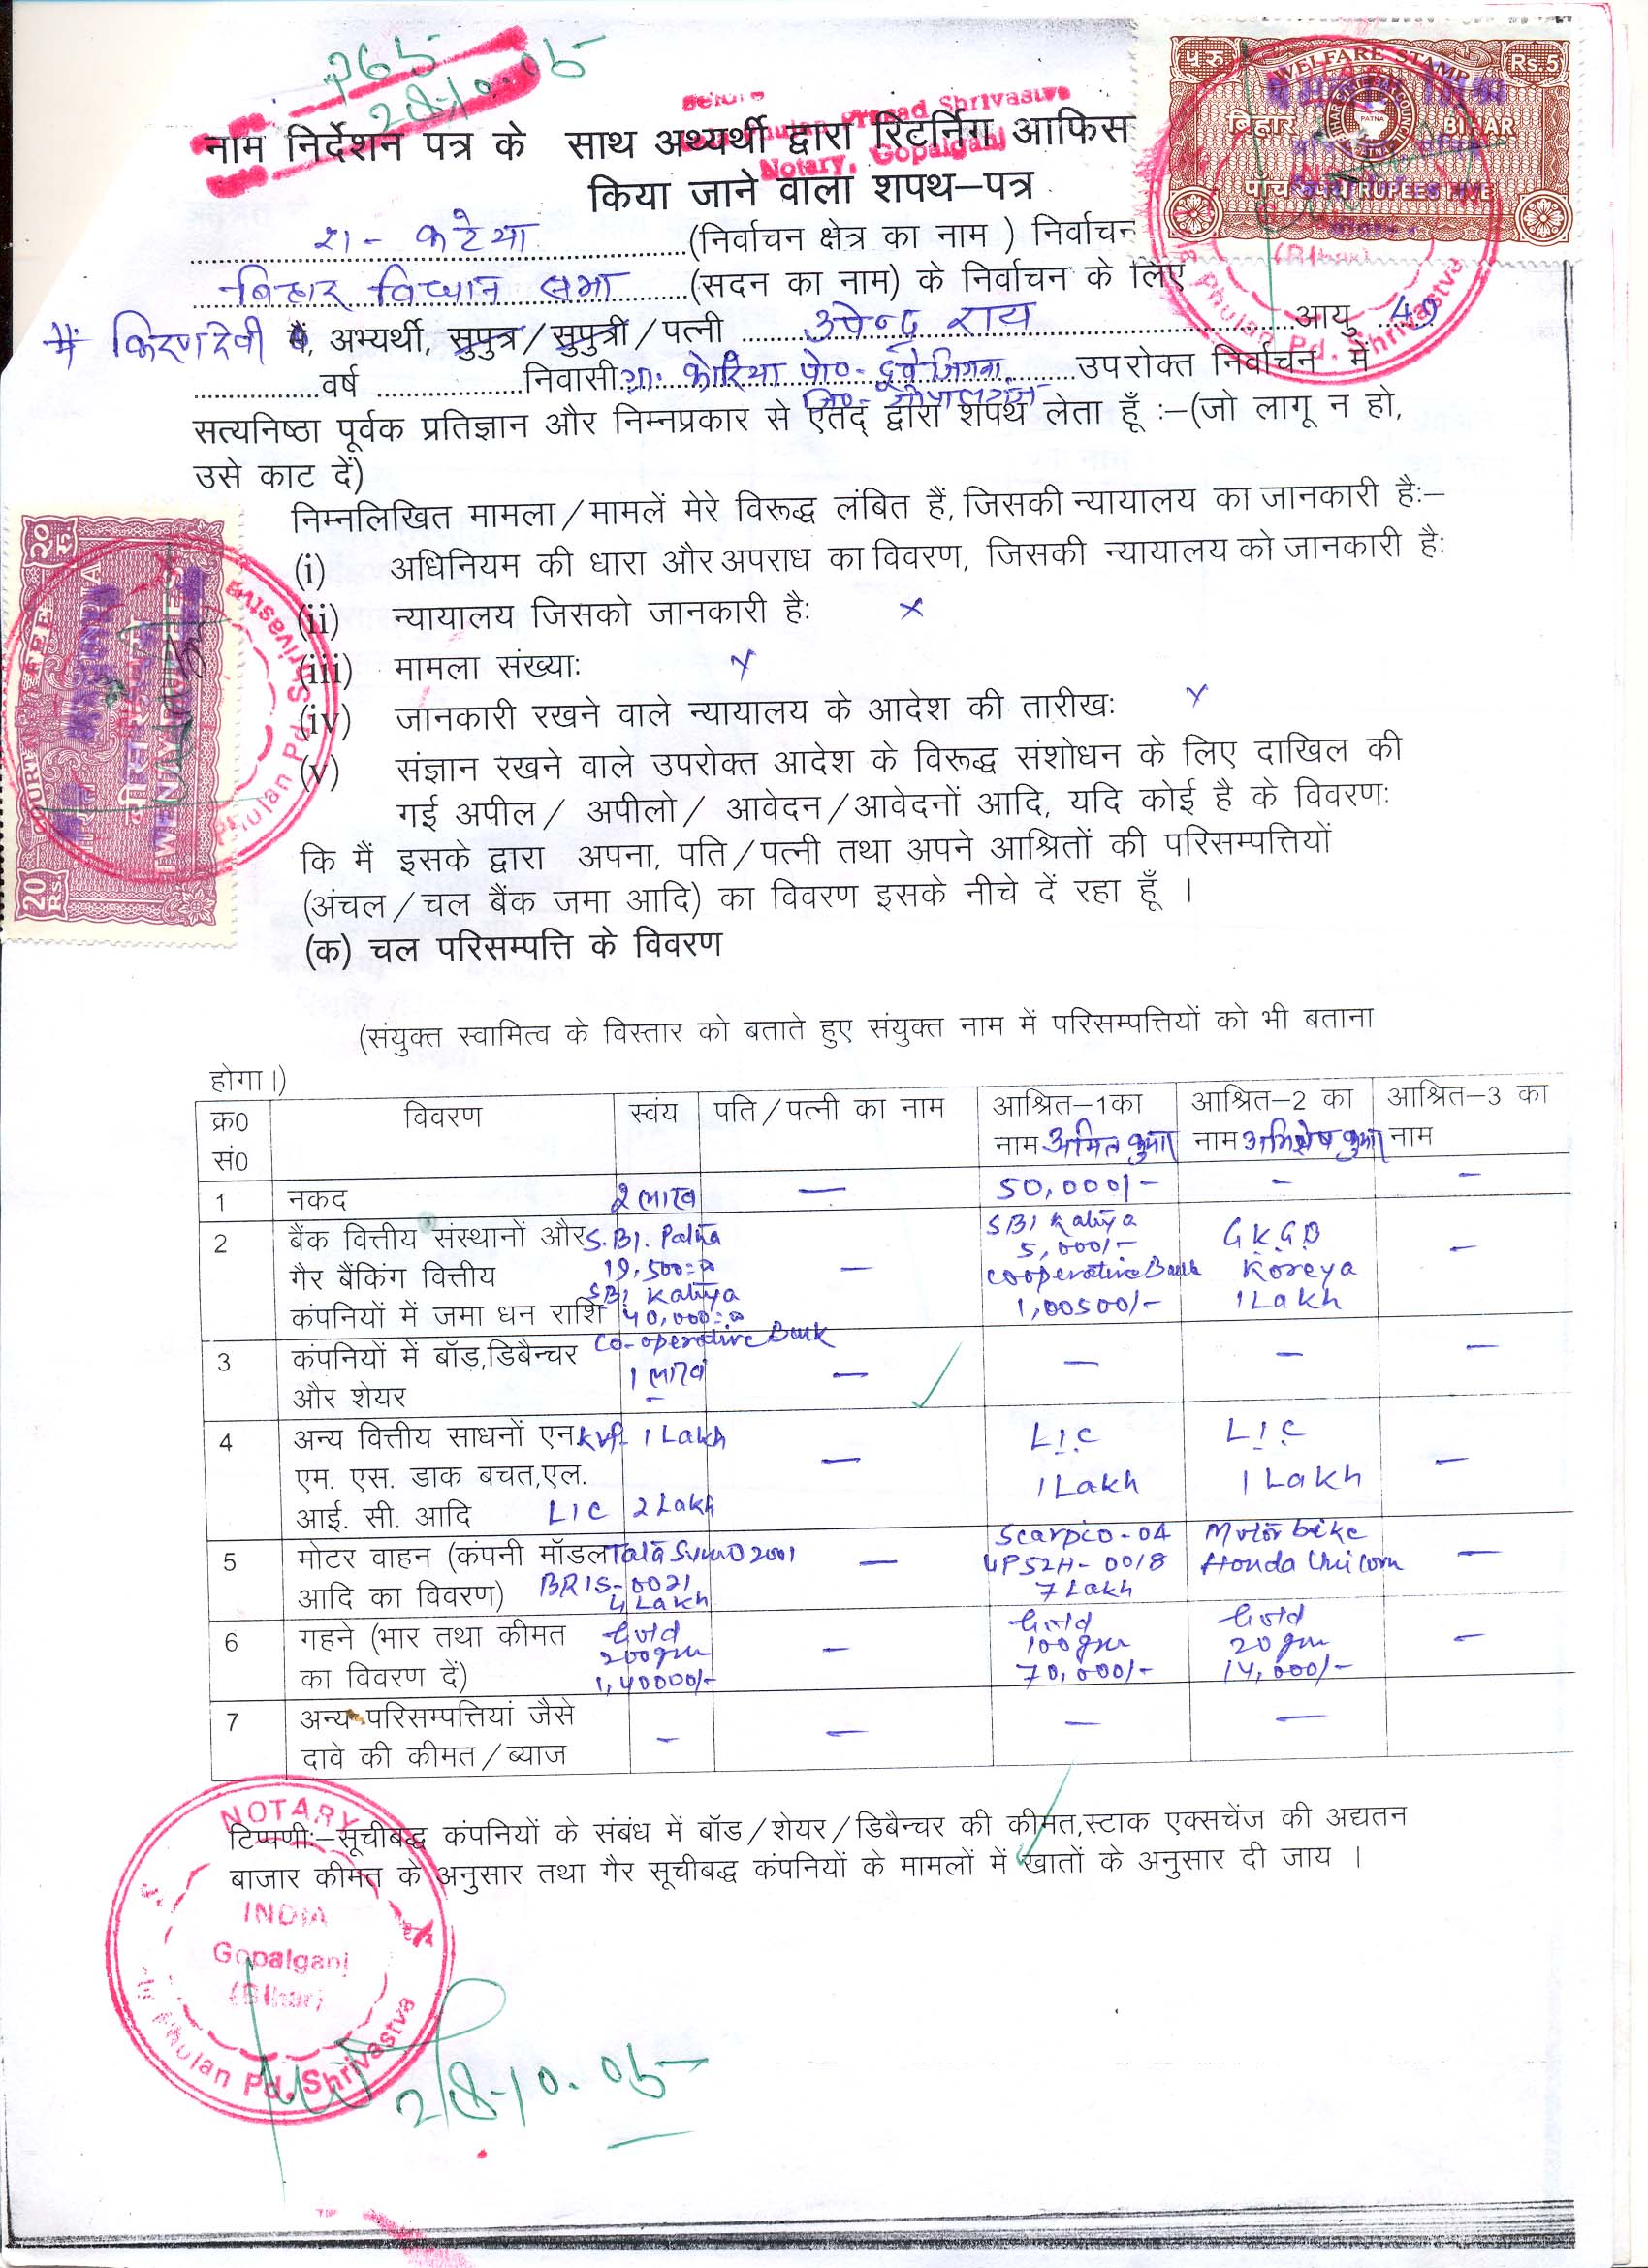 265
28-10-05
Before
Phulan Prasad Shrivastva
Notary, Gopalganj
प रु WELFARE STAMP Rs.5
बिहार BIHAR
PATNA
पांच रुपये RUPEES FIVE
नाम निर्देशन पत्र के साथ अथ्यर्थी द्वारा रिटर्निंग आफिस
किया जाने वाला शपथ–पत्र
कटेया (निर्वाचन क्षेत्र का नाम ) निर्वाचन
बिहार विधान सभा (सदन का नाम) के निर्वाचन के लिए
मैं किरण देवी मैं, अभ्यर्थी, सुपुत्र/सुपुत्री/पत्नी उपेन्द्र राय आयु 49
वर्ष निवासी ग्रा॰ कोरिया पो०- दुबे जिगना उपरोक्त निर्वाचन में
जि०- गोपालगंज
सत्यनिष्ठा पूर्वक प्रतिज्ञान और निम्नप्रकार से एतद् द्वारा शपथ लेता हूँ :–(जो लागू न हो,
उसे काट दें)
निम्नलिखित मामला/मामलें मेरे विरूद्ध लंबित हैं, जिसकी न्यायालय का जानकारी है:–
(i) अधिनियम की धारा और अपराध का विवरण, जिसकी न्यायालय को जानकारी है:
(ii) न्यायालय जिसको जानकारी है: x
(iii) मामला संख्या: x
(iv) जानकारी रखने वाले न्यायालय के आदेश की तारीख: x
(v) संज्ञान रखने वाले उपरोक्त आदेश के विरूद्ध संशोधन के लिए दाखिल की
गई अपील/ अपीलो/ आवेदन/आवेदनों आदि, यदि कोई है के विवरण:
कि मैं इसके द्वारा अपना, पति/पत्नी तथा अपने आश्रितों की परिसम्पत्तियों
(अंचल/चल बैंक जमा आदि) का विवरण इसके नीचे दें रहा हूँ ।
(क) चल परिसम्पत्ति के विवरण
20 Rs. COURT FEE INDIA २० रु.
बीस रुपये
TWENTY RUPEES
Phulan Pd. Shrivastva
(संयुक्त स्वामित्व के विस्तार को बताते हुए संयुक्त नाम में परिसम्पत्तियों को भी बताना
होगा।)
क्र0 विवरण स्वंय पति/पत्नी का नाम आश्रित–1का आश्रित–2 का आश्रित–3 का
सं0 नाम अमित कुमार नाम अभिशेष कुमार नाम
1 नकद 2 लाख — 50,000/- - -
2 बैंक वित्तीय संस्थानों और S.B.I. Patna — SBI Katiya GKGB —
गैर बैंकिंग वित्तीय 19,500=00 5,000/- Koreya
कंपनियों में जमा धन राशि SBI Katiya Cooperative Bank 1 Lakh
40,000=00 1,00500/-
3 कंपनियों में बॉड़,डिबैन्चर Co-operative Bank — — — —
और शेयर 1 लाख
-
4 अन्य वित्तीय साधनों एन KVP 1 Lakh — LIC LIC —
एम. एस. डाक बचत,एल. 1 Lakh 1 Lakh
आई. सी. आदि LIC 2 Lakh
5 मोटर वाहन (कंपनी मॉडल Tata Sumo 2001 — Scarpio-04 Motor bike —
आदि का विवरण) BR1S-0021 UP52H-0018 Honda Unicorn
4 Lakh 7 Lakh
6 गहने (भार तथा कीमत Gold — Gold Gold —
का विवरण दें) 200gm 100gm 20 gm
1,40000/- 70,000/- 14,000/-
7 अन्य परिसम्पत्तियां जैसे - — — —
दावे की कीमत/ब्याज
टिप्पणी:–सूचीबद्ध कंपनियों के संबंध में बॉड/शेयर/डिबैन्चर की कीमत,स्टाक एक्सचेंज की अद्यतन
बाजार कीमत के अनुसार तथा गैर सूचीबद्ध कंपनियों के मामलों में खातों के अनुसार दी जाय ।
NOTARY
INDIA
Gopalganj
(Bihar)
Phulan Pd. Shrivastva
28-10-05